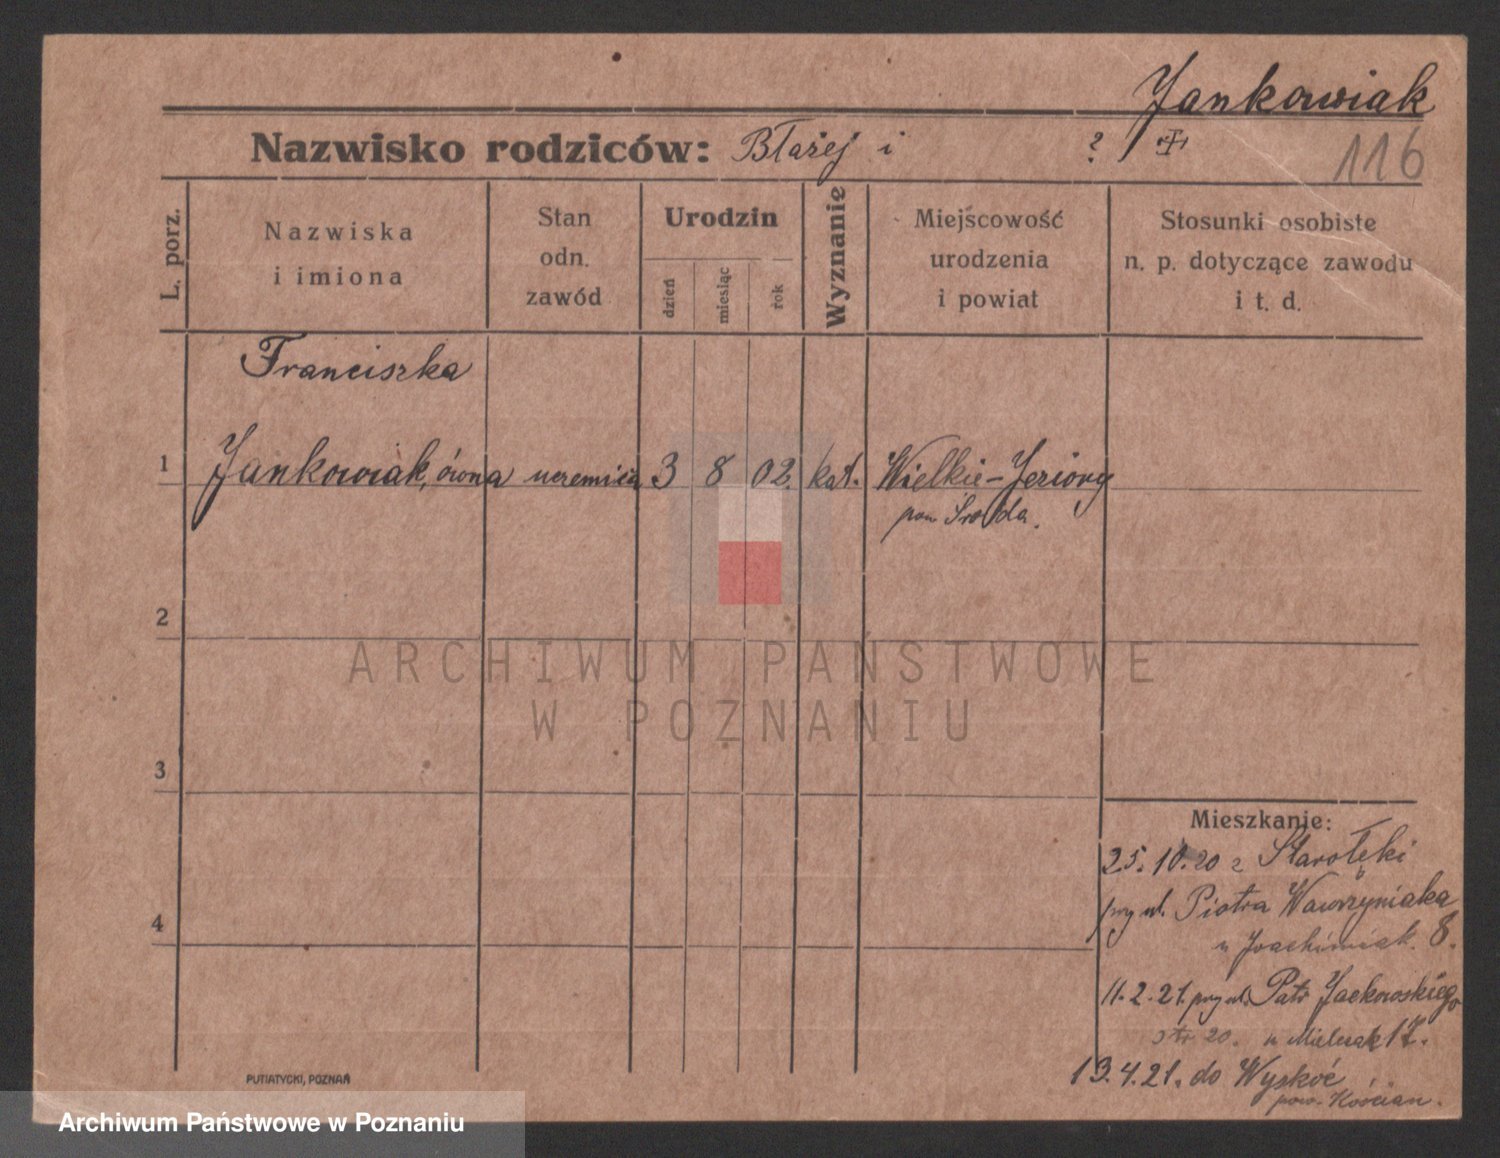 Jankowiak
Nazwisko rodziców: Błażej i ?
116
L. porz.
Nazwiska
i imiona
Stan
odn.
zawód
Urodzin
dzień
miesiąc
rok
Wyznanie
Miejscowość
urodzenia
i powiat
Stosunki osobiste
n. p. dotyczące zawodu
i t. d.
Franciszka
1 Jankowiak, ówna uczenica 3 8 02. kat. Wielkie-Jeziory
pow. Środa.
2
ARCHIWUM PAŃSTWOWE
W POZNANIU
3
Mieszkanie:
25.10.20 z Starołęki
4 przy ul. Piotra Wawrzyniaka
u Joachimiak. 8.
11.2.21. przy ul. Patr Jackowskiego
20. u 17.
19.4.21. do Wyskoć
pow. Kościan.
PUTIATYCKI, POZNAŃ
Archiwum Państwowe w Poznaniu